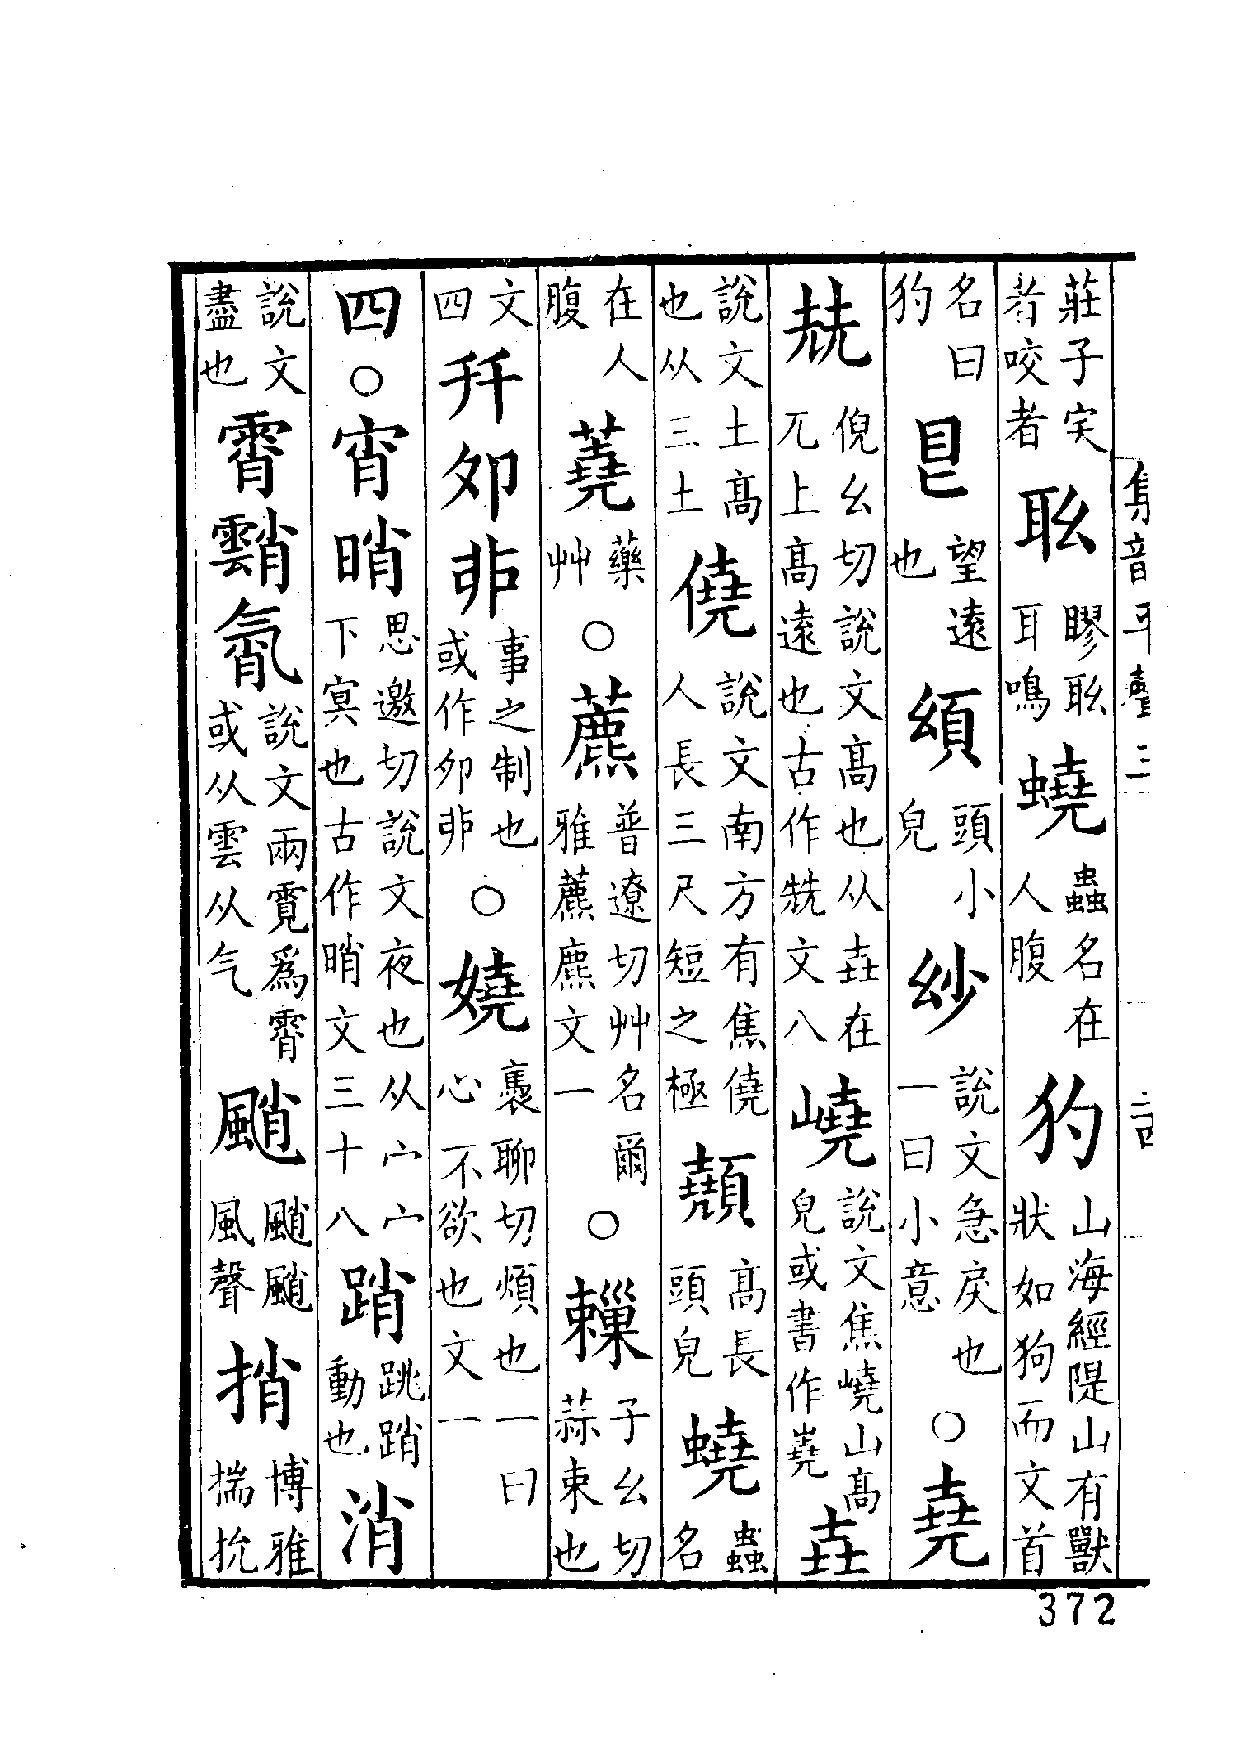 莊子宎者咬者 膠耳鳴 蟯 蟲名在人腹 犳 山海經隄山有獸狀如狗而文首
名曰犳 望遠也 頭小皃 說文急戾也一曰小意 ○ 堯
倪幺切說文高也从垚在兀上高遠也古作文八 嶢 說文焦嶢山高皃或書作嶤 垚
說文土高也从三土 僥 說文南方有焦僥人長三尺短之極 顤 高長頭皃 蟯 蟲名
在人腹 蕘 藥艸 ○ 藨 普遼切艸名爾雅藨麃文一 ○ 子幺切蒜束也
文四 夘 戼 事之制也或作夘戼 ○ 嬈 裊聊切煩也一曰心不欲也文一
四 ○ 宵 㫾 思邀切說文夜也从宀宀下冥也古作㫾文三十八 踃 跳踃動也 消
說文盡也 霄 說文雨霓爲霄或从雲从气 颵 颵颵風聲 捎 博雅揣捝
集音平聲三 二四
372